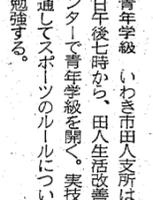 青年学級 いわき市田人支所は
日午後七時から、田人生活改善
ンターで青年学級を開く。実技
通してスポーツのルールについ
勉強する。